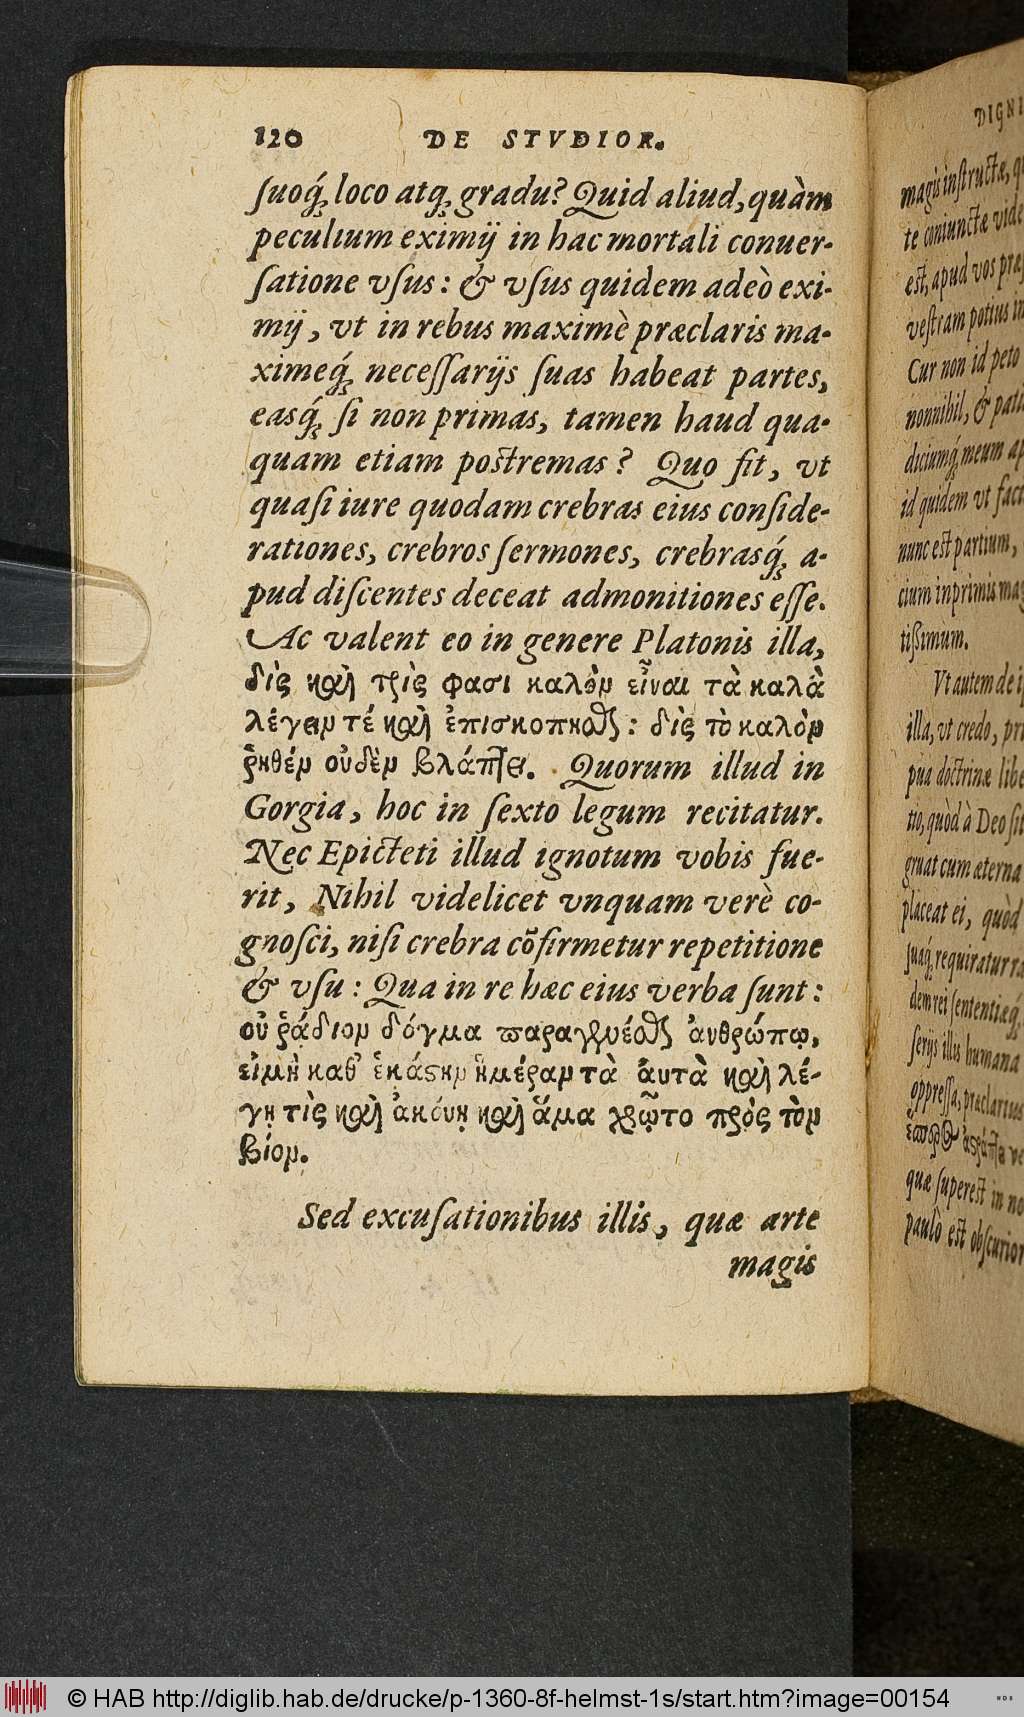 120 DE STVDIOR.
ſuoq́ꝫ loco atqꝫ gradu? Quid aliud, quàm
peculium eximij in hac mortali conuer-
ſatione vſus: & vſus quidem adeò exi-
mij, vt in rebus maximè præclaris ma-
ximeq́ꝫ neceſſarijs ſuas habeat partes,
easq́ꝫ ſi non primas, tamen haud qua-
quam etiam poſtremas? Quo fit, vt
quaſi iure quodam crebras eius conſide-
rationes, crebros ſermones, crebrasq́ꝫ a-
pud diſcentes deceat admonitiones eſſe.
Ac valent eo in genere Platonis illa,
δὶς καὶ τρὶς φασι καλὸν εἶναι τὰ καλὰ
λέγειν τέ καὶ ἐπισκοπεῖσθαι: δὶς τὸ καλὸν
ῥηθέν οὐδὲν βλάπτει. Quorum illud in
Gorgia, hoc in ſexto legum recitatur.
Nec Epicteti illud ignotum vobis fue-
rit, Nihil videlicet vnquam verè co-
gnoſci, niſi crebra cõfirmetur repetitione
& vſu: Qua in re hæc eius verba ſunt:
οὐ ῥᾴδιον δόγμα παραγενέσθαι ἀνθρώπῳ,
εἰμὴ καθ' ἑκάστην ἡμέραν τὰ ἀυτὰ καὶ λέ-
γῃ τὶς καὶ ἀκούῃ καὶ ἅμα χρῷτο πρὸς τὸν
βίον.
Sed excuſationibus illis, quæ arte
magis
DIGNI
magis inſtructæ, q
te coniunctæ vide
eſt, apud vos præ
veſtram potius in
Cur non id peto
nonnihil, & pati
diciumq́ꝫ meum ap
id quidem vt faci
nunc eſt partium,
cium inprimis mag
tißimum.
Vt autem de i
illa, vt credo, pri
pua doctrinæ libe
tio, quòd à Deo ſit
gruat cum æterna
placeat ei, quòd
ſuaq́ꝫ requiratur ra
dem rei ſententiæq́ꝫ
ſerijs illis humana
oppreſſa, præclarius
quæ ſupereſt in no
paulò eſt obſcurior
© HAB http://diglib.hab.de/drucke/p-1360-8f-helmst-1s/start.htm?image=00154
HAB